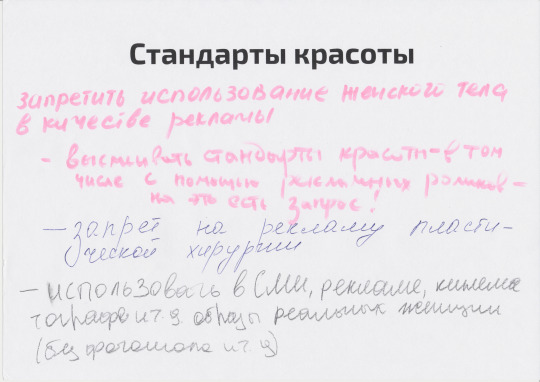 Стандарты красоты
запретить использование женского тела
в качестве рекламы
- высмеивать стандарты красоты - в том
числе с помощью рекламных роликов -
на это есть запрос!
- запрет на рекламу пласти-
ческой хирургии
- использовать в СМИ, рекламе, кинема
тографе и т.д. образы реальных женщин
(без фотошопа и т.д)